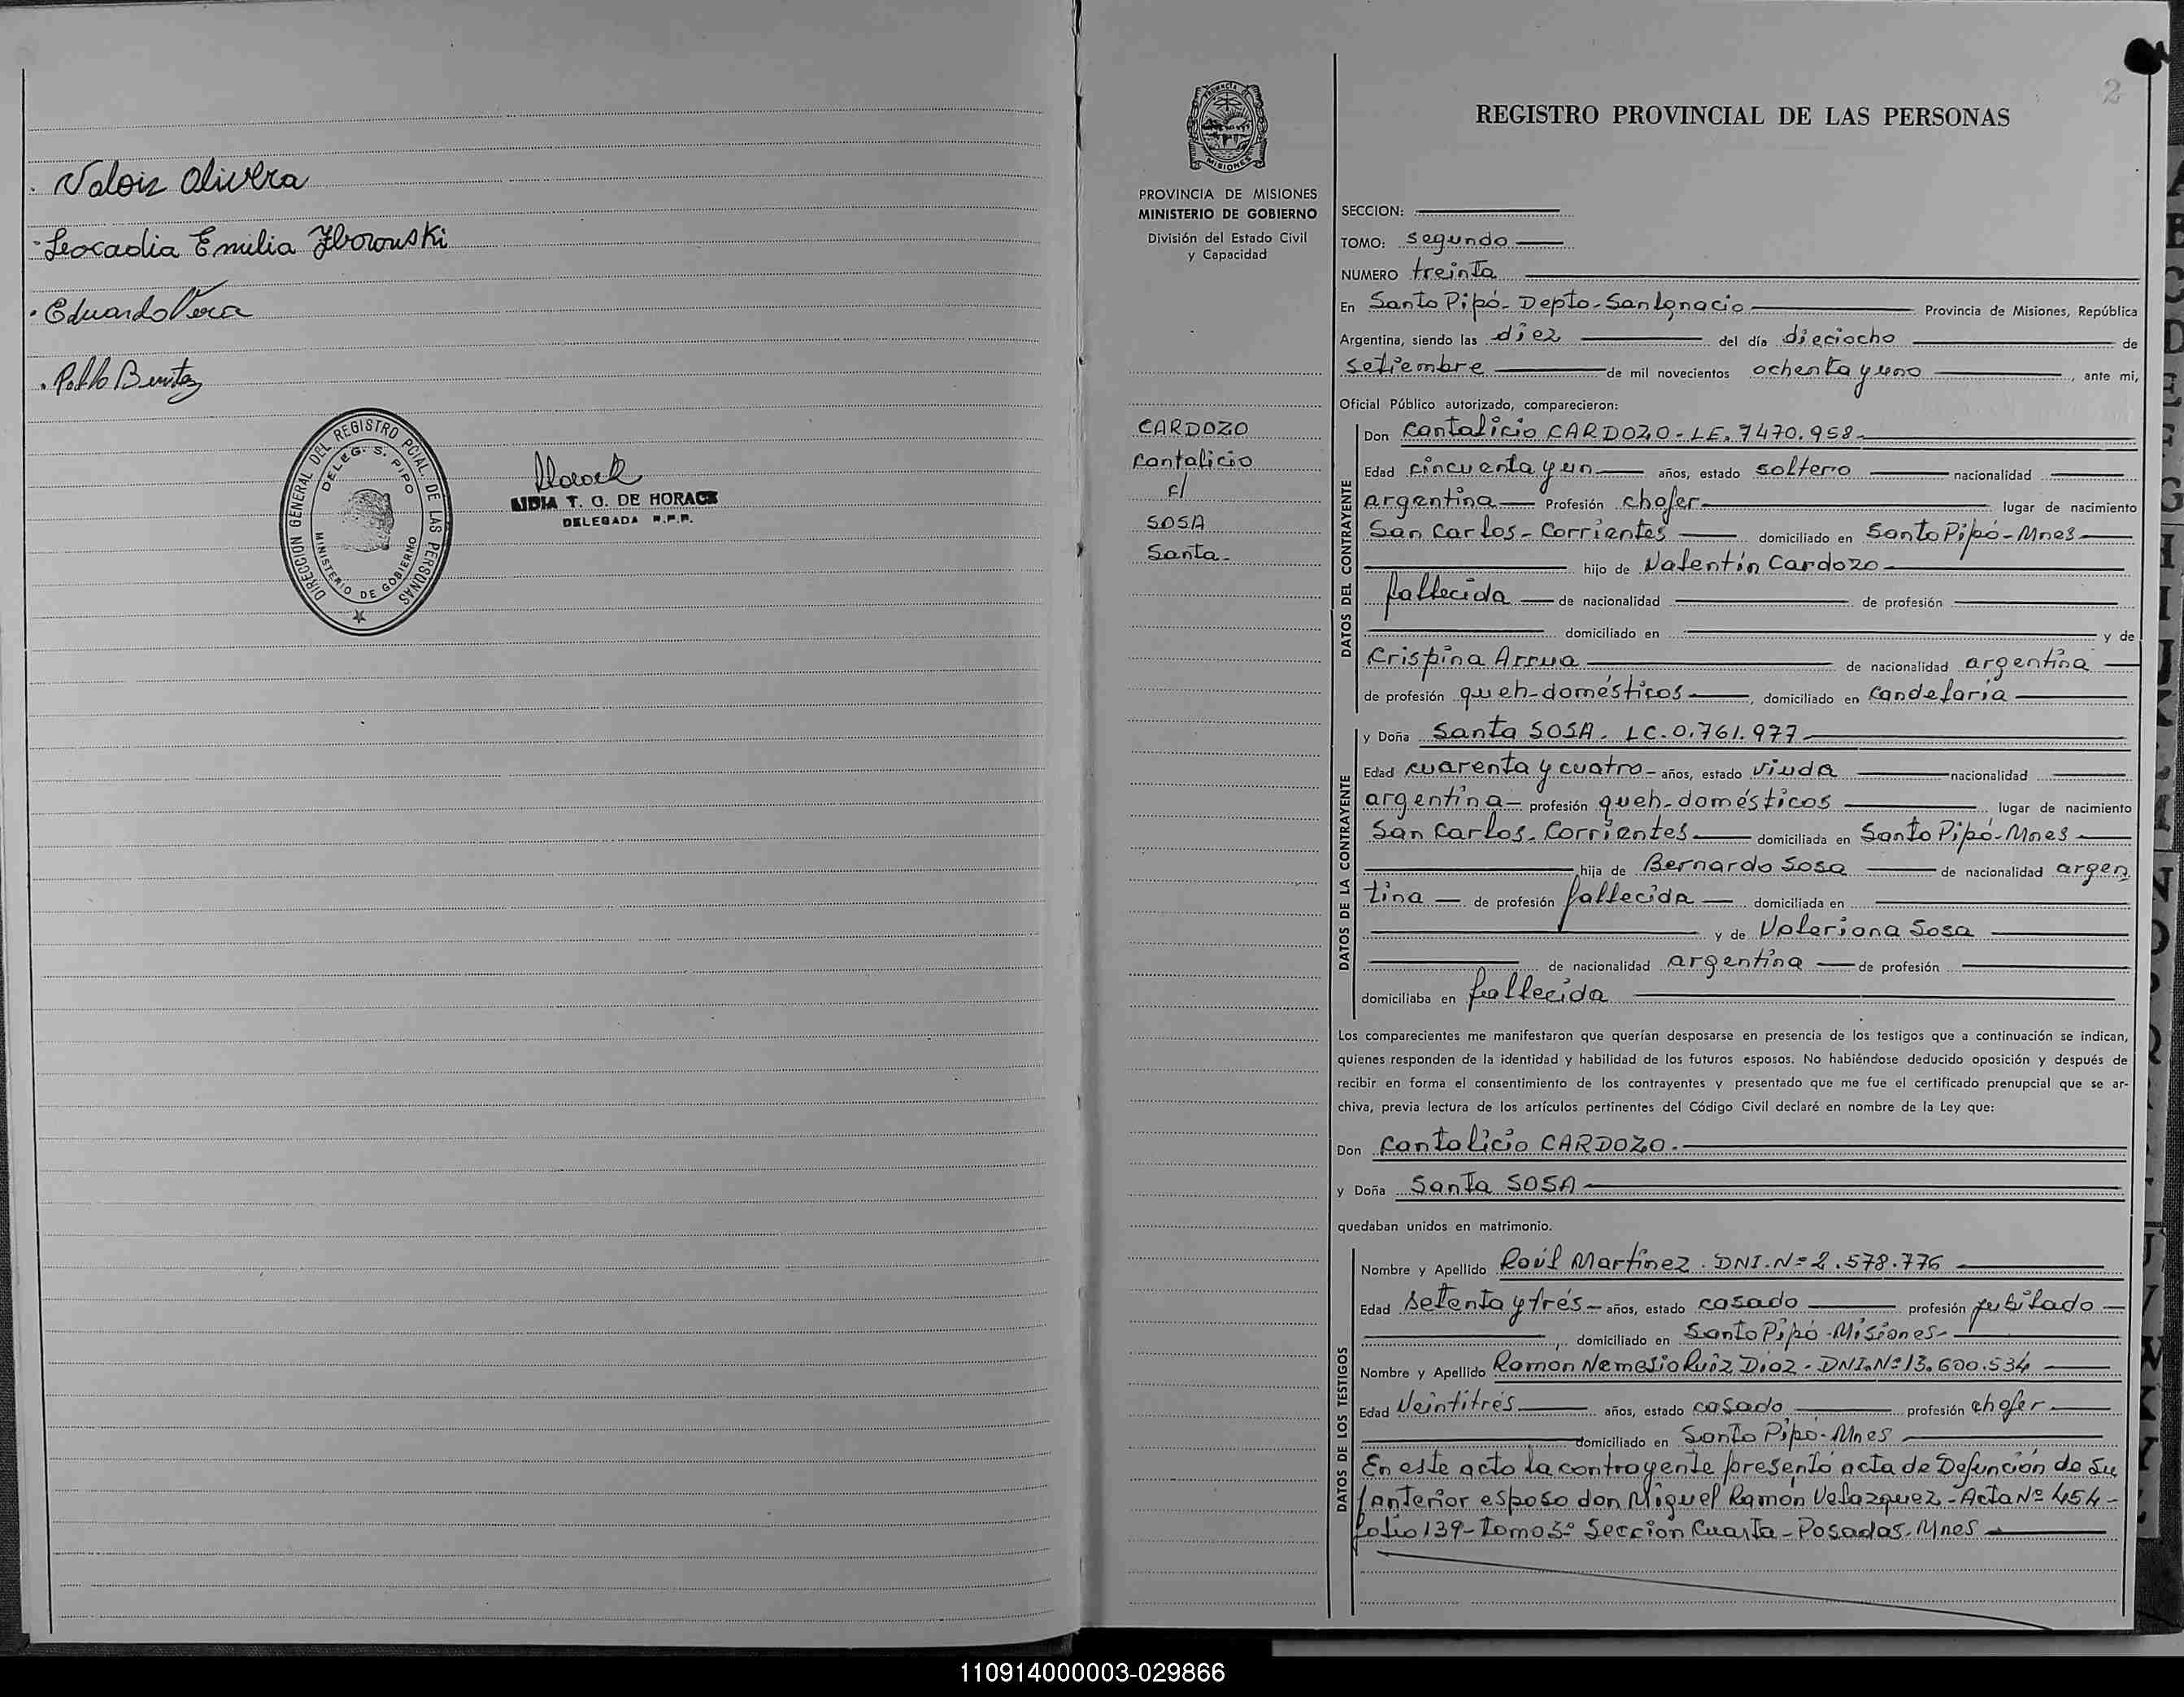 Valois Olivera
Leocadia Emilia Zborowski
Eduardo Vera
Pablo Benitez
DIRECCION GENERAL DEL REGISTRO PCIAL. DE LAS PERSONAS
DELEG. S. PIPO
MINISTERIO DE GOBIERNO
LIDIA T. O. DE HORACK
DELEGADA R.P.P.
2
PROVINCIA DE MISIONES
MINISTERIO DE GOBIERNO
División del Estado Civil
y Capacidad
CARDOZO
Cantalicio
c/
SOSA
Santa-
REGISTRO PROVINCIAL DE LAS PERSONAS
SECCION:
TOMO: Segundo
NUMERO treinta
En Santo Pipó- Depto-San Ignacio Provincia de Misiones, República
Argentina, siendo las diez del día dieciocho de
setiembre de mil novecientos ochenta y uno, ante mi,
Oficial Público autorizado, comparecieron:
DATOS DEL CONTRAYENTE
Don Cantalicio CARDOZO-L.E. 7470.958-
Edad cincuenta y un años, estado soltero nacionalidad
argentina Profesión chofer lugar de nacimiento
San Carlos-Corrientes domiciliado en Santo Pipó-Mnes
hijo de Valentín Cardozo
fallecida de nacionalidad de profesión
domiciliado en y de
Crispina Arrua de nacionalidad argentina
de profesión queh-domésticos, domiciliado en Candelaria
DATOS DE LA CONTRAYENTE
y Doña Santa SOSA. LC.0.761.977-
Edad cuarenta y cuatro- años, estado viuda nacionalidad
argentina- profesión queh-domésticos lugar de nacimiento
San Carlos-Corrientes domiciliada en Santo Pipó-Mnes
hija de Bernardo Sosa de nacionalidad argen
tina de profesión fallecida domiciliada en
y de Valeriana Sosa
de nacionalidad argentina de profesión
domiciliaba en fallecida
Los comparecientes me manifestaron que querían desposarse en presencia de los testigos que a continuación se indican,
quienes responden de la identidad y habilidad de los futuros esposos. No habiéndose deducido oposición y después de
recibir en forma el consentimiento de los contrayentes y presentado que me fue el certificado prenupcial que se ar-
chiva, previa lectura de los artículos pertinentes del Código Civil declaré en nombre de la Ley que:
Don Cantalicio CARDOZO.
y Doña Santa SOSA
quedaban unidos en matrimonio.
DATOS DE LOS TESTIGOS
Nombre y Apellido Raúl Martínez. DNI.Nº 2.578.776
Edad setenta y tres- años, estado casado profesión jubilado
domiciliado en Santo Pipó-Misiones
Nombre y Apellido Ramon Nemesio Ruiz Diaz-DNI.Nº13.600.534
Edad Veintitrés años, estado casado profesión chofer
domiciliado en Santo Pipó-Mnes
En este acto la contrayente presentó acta de Defunción de su
anterior esposo don Miguel Ramón Velazquez-Acta Nº 454-
folio 139-Tomo 3º Seccion Cuarta-Posadas-Mnes
110914000003-029866